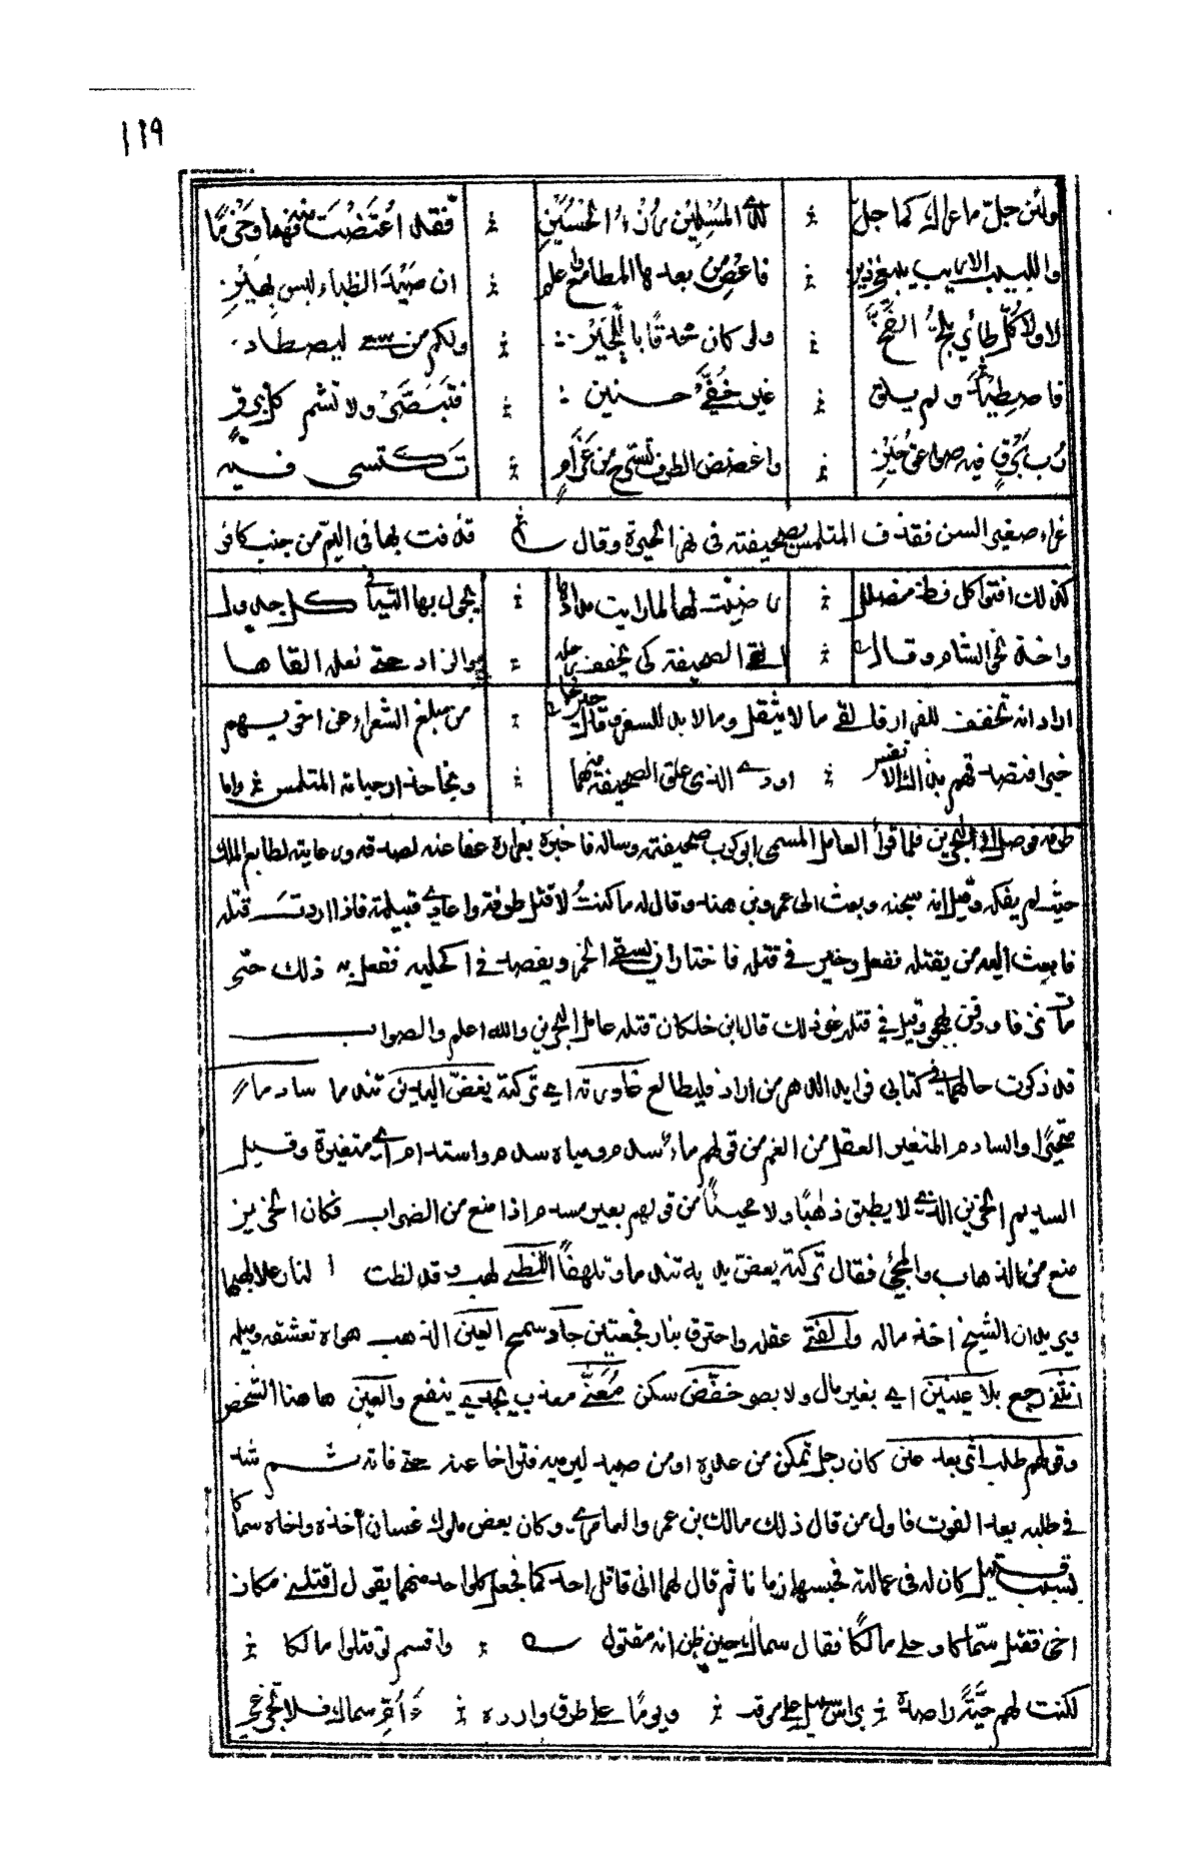 ١١٩
ولئن جلّ ما عراك كما جلّ ؛ لدى المسلمين رزء الحسين ؛ فقد اعتضت منه فهما وحزما
واللبيب الاريب يبغي ذين ؛ فاعص من بعدها المطامع واعلم ؛ ان صيد الظباء ليس بهين
لا ولا كل طائر يلج الفخ ؛ ولو كان محدقا باللجين ؛ ولكم من سعى ليصطاد
فاصطيد ولم يلق ؛ غير خفي حنين ؛ فتبصر ولا تشم كل برق
رب برق فيه صواعق حين ؛ واغضض الطرف تسترح من غرام ؛ تكتسى فيه
غراء صغير السن فقذف المتلمس بصحيفته في نهر الحيرة وقال قذفت بها في اليم من جنب كافر
كذلك افنوا كل قط مضلل ؛ رضيت لها لما رايت مدادها ؛ يجول بها التيار في كل جدول
واخذ نحو الشام وقال ؛ القى الصحيفة كي يخفف رحله ؛ والزاد حتى نعله القاها
اراد انه تخفف للفرار فالقى ما لا يثقل وما لا بد للسفر وقال ؛ من مبلغ الشعراء عن اخويهم
خبرا فتصدقهم بذاك الانفس ؛ اودى الذي علق الصحيفة منهما ؛ ونجا حذار حياته المتلمس واما
طرفه فوصل الى البحرين فلما قرأ العامل المسمى ابو كرب صحيفته وساله فاخبره بمراده عفا عنه لصدقه ورعايته لطابع الملك
حيث لم يفكه وقيل انه سجنه وبعث الى عمرو بن هند وقال له ما كنت لاقتل طرفة واعادي قبيلته فاذا اردت قتله
فابعث اليه من يقتله ففعل وخير في قتله فاختار ان يسقى الخمر ويفصد في اكحليه ففعل به ذلك حتى
مات نزفا ودفن بهجر وقيل في قتله غير ذلك قال ابن خلكان قتله عامل البحرين والله اعلم والصواب
قد ذكرت حالهما في كتابي فرايد الدهر من اراد فليطالع غادرته اي تركته يعض اليدين ندما سادما
متحيرا والسادم المتغير العقل من الغم من قولهم ماء سدم ومياه سدم واسدام اي متغيرة وقيل
السديم الحزين الذي لا يطيق ذهابا ولا مجيئا من قولهم بعير مسدم اذا منع من الضراب فكان الحزين
منع من الذهاب والمجئ فقال تركته يعض يديه تندما وتلهفا التظى لهب وقد لظت النار علا لهبها
ويريد ان الشيخ اخذ ماله والفتى عقله واحترق بنار فجعتين جاد سمح العين الذهب هواه تعشقه وميله
انثنى رجع بلا عينين اي بغير مال ولا بصر خفض سكن معنى معذب يجدي ينفع والعين هاهنا الشخص
وقولهم طلب اثر بعد عين كان رجل تمكن من عدوه او من صيد ليرميه فتراخا عنه حتى فاته ثم شد
في طلبه بعد الفوت فاول من قال ذلك مالك بن عمرو العامري وكان بعض ملوك غسان اخذه واخاه سماكا
بسبب قتيل كان له في عمالته فحبسهما زمانا ثم قال لهما اني قاتل احدكما فجعل كل واحد منهما يقول اقتلني مكان
اخي فقتل سماكا وخلى مالكا فقال سماك حين ظن انه مقتول ؛ واقسم لو قتلوا مالكا ؛
لكنت لهم حية راصدة ؛ براس سبيل على مرقد ؛ ويوما على طرق وارده ؛ أأم سماك فلا تجزعي